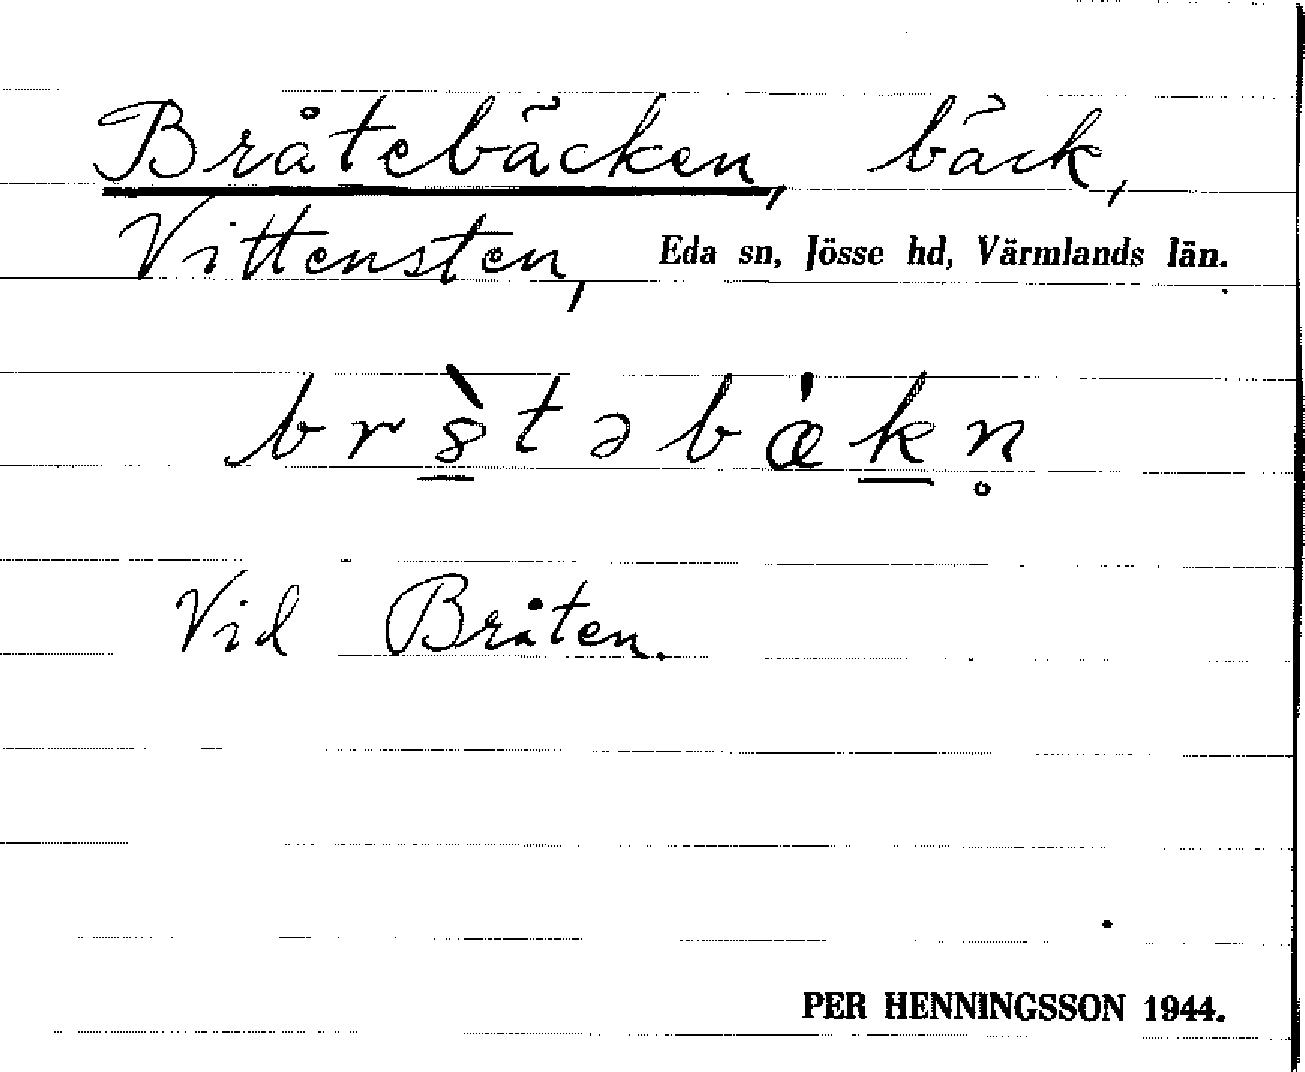 Bråtebäcken, bäck,
Vittensten, Eda sn, Jösse hd, Värmlands län.
Vid Bråten.
PER HENNINGSSON 1944.